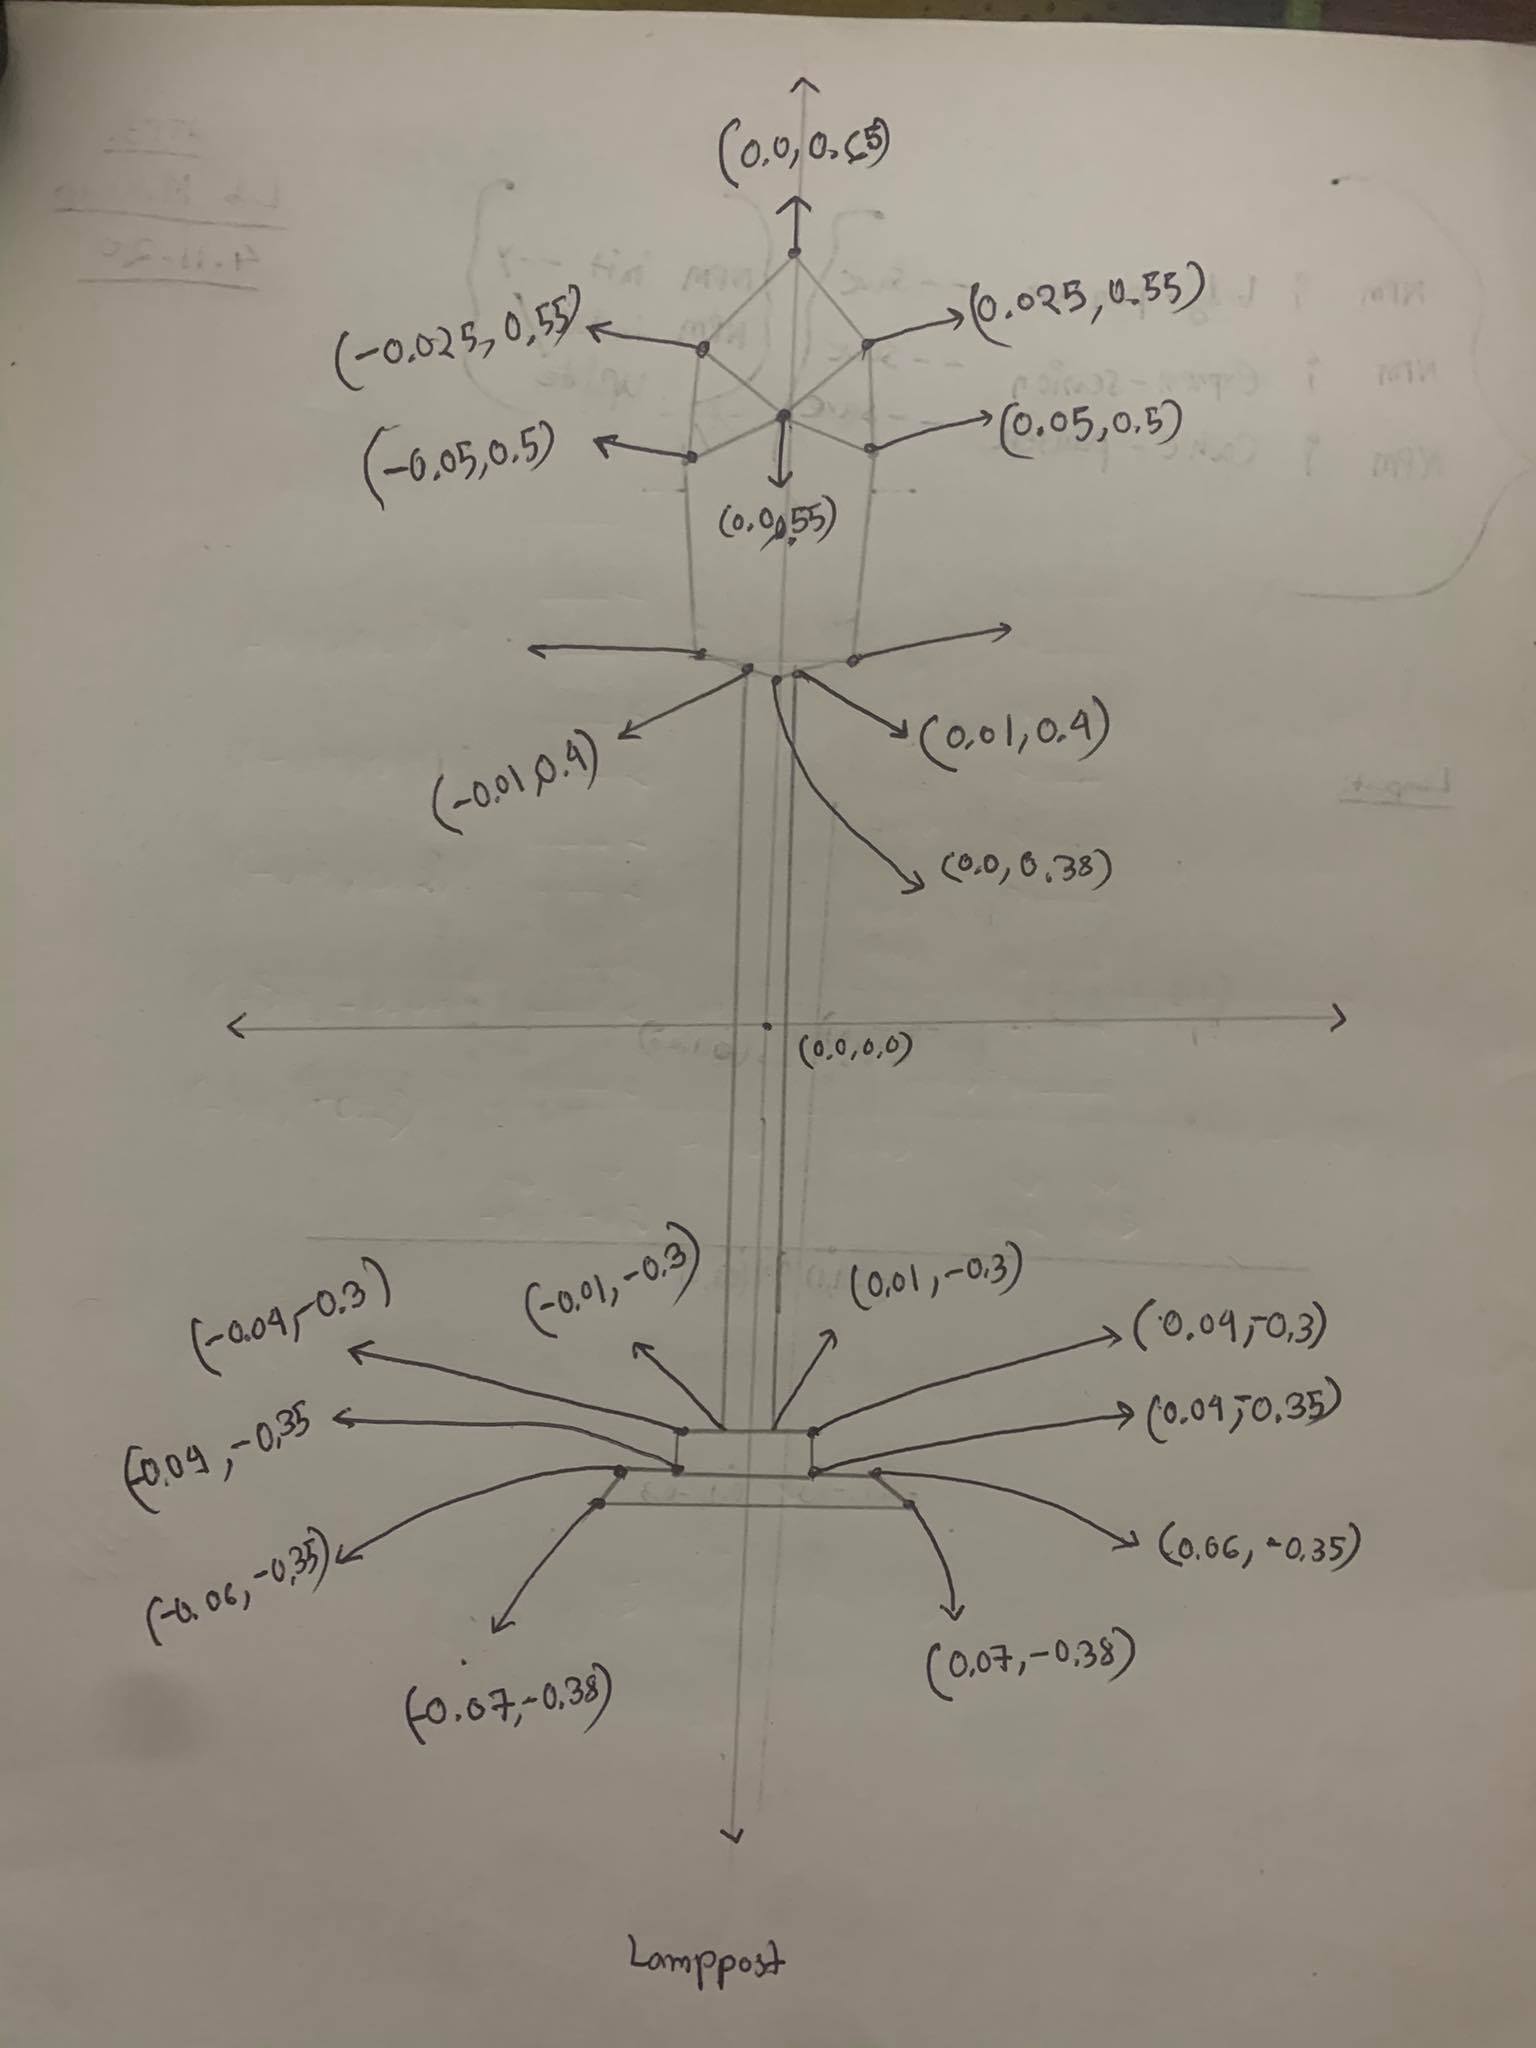 (0.0, 0.65)
(-0.025, 0.55)
(0.025, 0.55)
(-0.05, 0.5)
(0.05, 0.5)
(0.0, 0.55)
(-0.01, 0.4)
(0.01, 0.4)
(0.0, 0.38)
(0.0, 0.0)
(-0.04, -0.3)
(-0.01, -0.3)
(0.01, -0.3)
(0.04, -0.3)
(-0.04, -0.35
(0.04, -0.35)
(-0.06, -0.35)
(0.06, -0.35)
(-0.07, -0.38)
(0.07, -0.38)
Lamppost